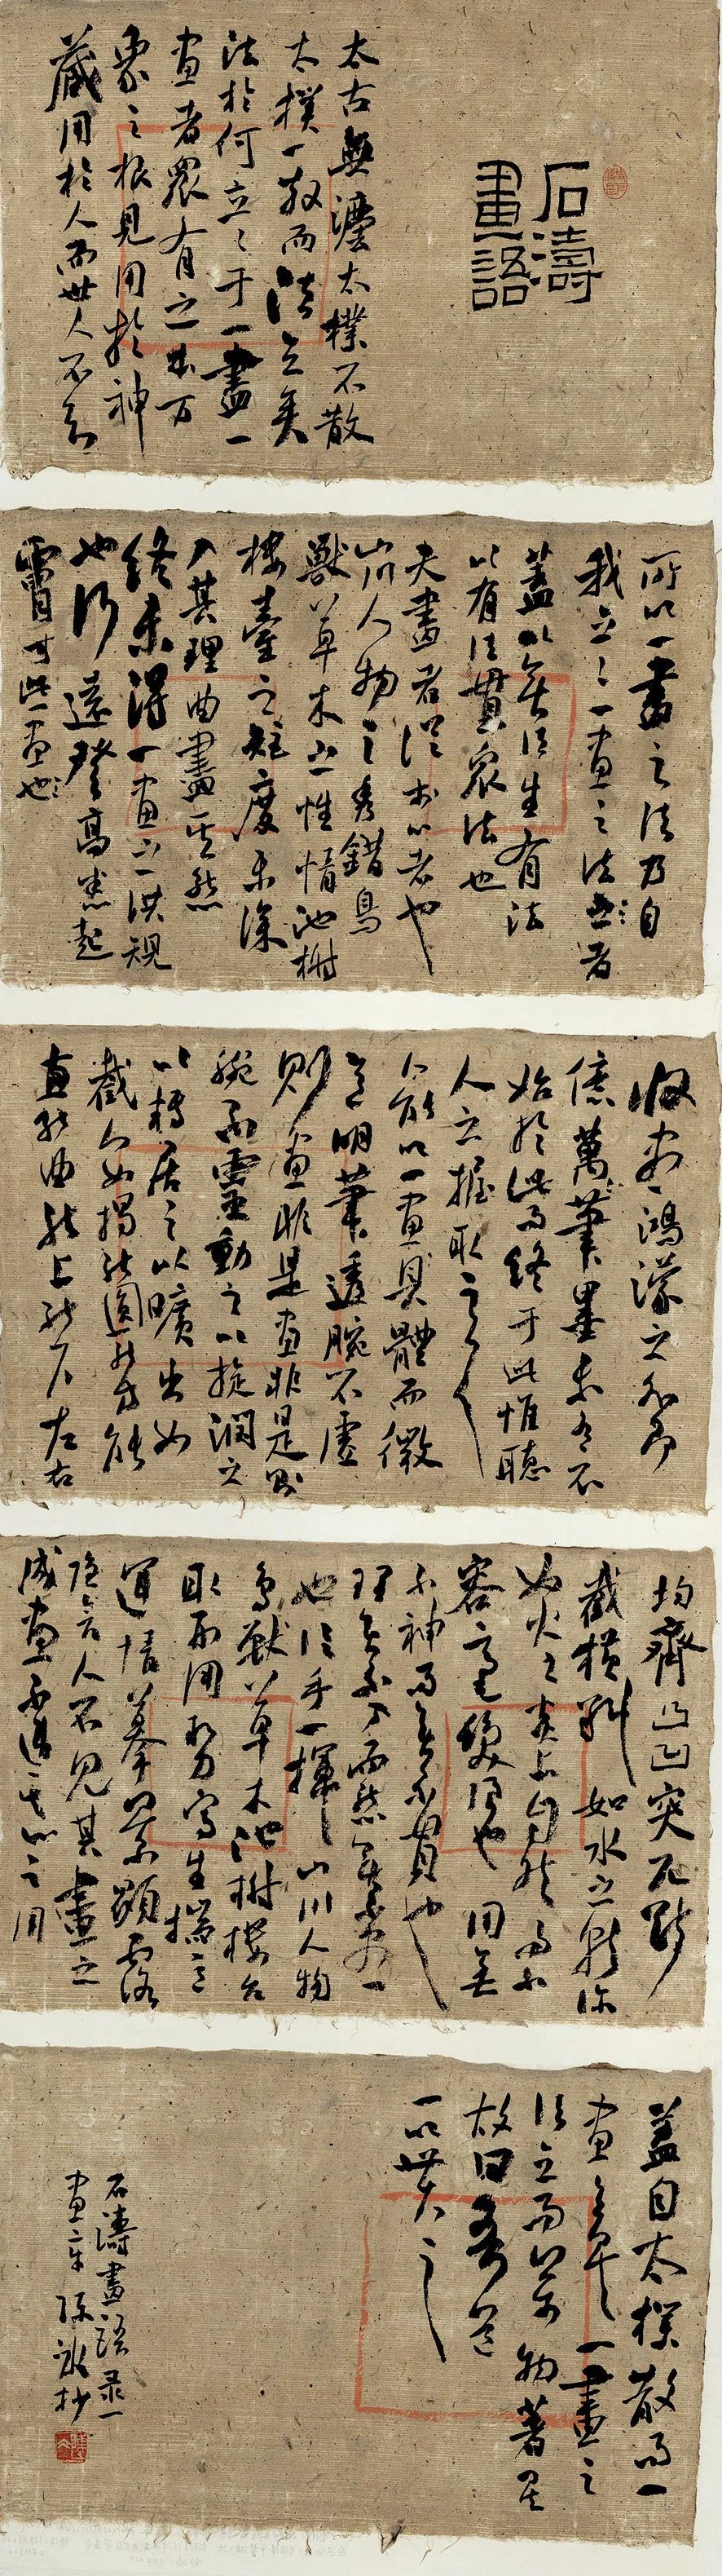 石濤
畫語
太古無瀍太樸不散
太樸一散而法立矣
法於何立立于一畫一
畫者眾有之本万
象之根見用於神
藏用於人而世人不知
所以一畫之法乃自
我立立一畫之法者
蓋以無法生有法
以有法貫眾法也
夫畫者從於心者也
山川人物之秀錯鳥
獸草木之性情池榭
樓臺之矩度未深
入其理曲盡其態
終未得一畫之洪規
也行遠登高悉起
膚寸此一畫也
收盡鴻濛之外即
億萬筆墨未有不
始於此而終于此惟聽
人之握取之
人能以一畫具體而微
意明筆透腕不虛
則畫非是畫非是則
腕不靈動之以旋潤之
以轉居之以曠出如
截入如揭能圓能方能
直能曲能上能下左右
均齊凸凹突兀斷
截橫斜如水之就深
如火之炎上自然而不
容毫髮強也用無
不神而法無不貫也
理無不入而態無不盡
也信手一揮山川人物
鳥獸草木池榭樓台
取形用勢寫生揣意
運情摹景顯露
隱含人不見其畫之
成畫不違其心之用
蓋自太樸散而一
畫之法立一畫之
法立而萬物著矣
故曰吾道
一以貫之
石濤畫語录一
畫章 抄